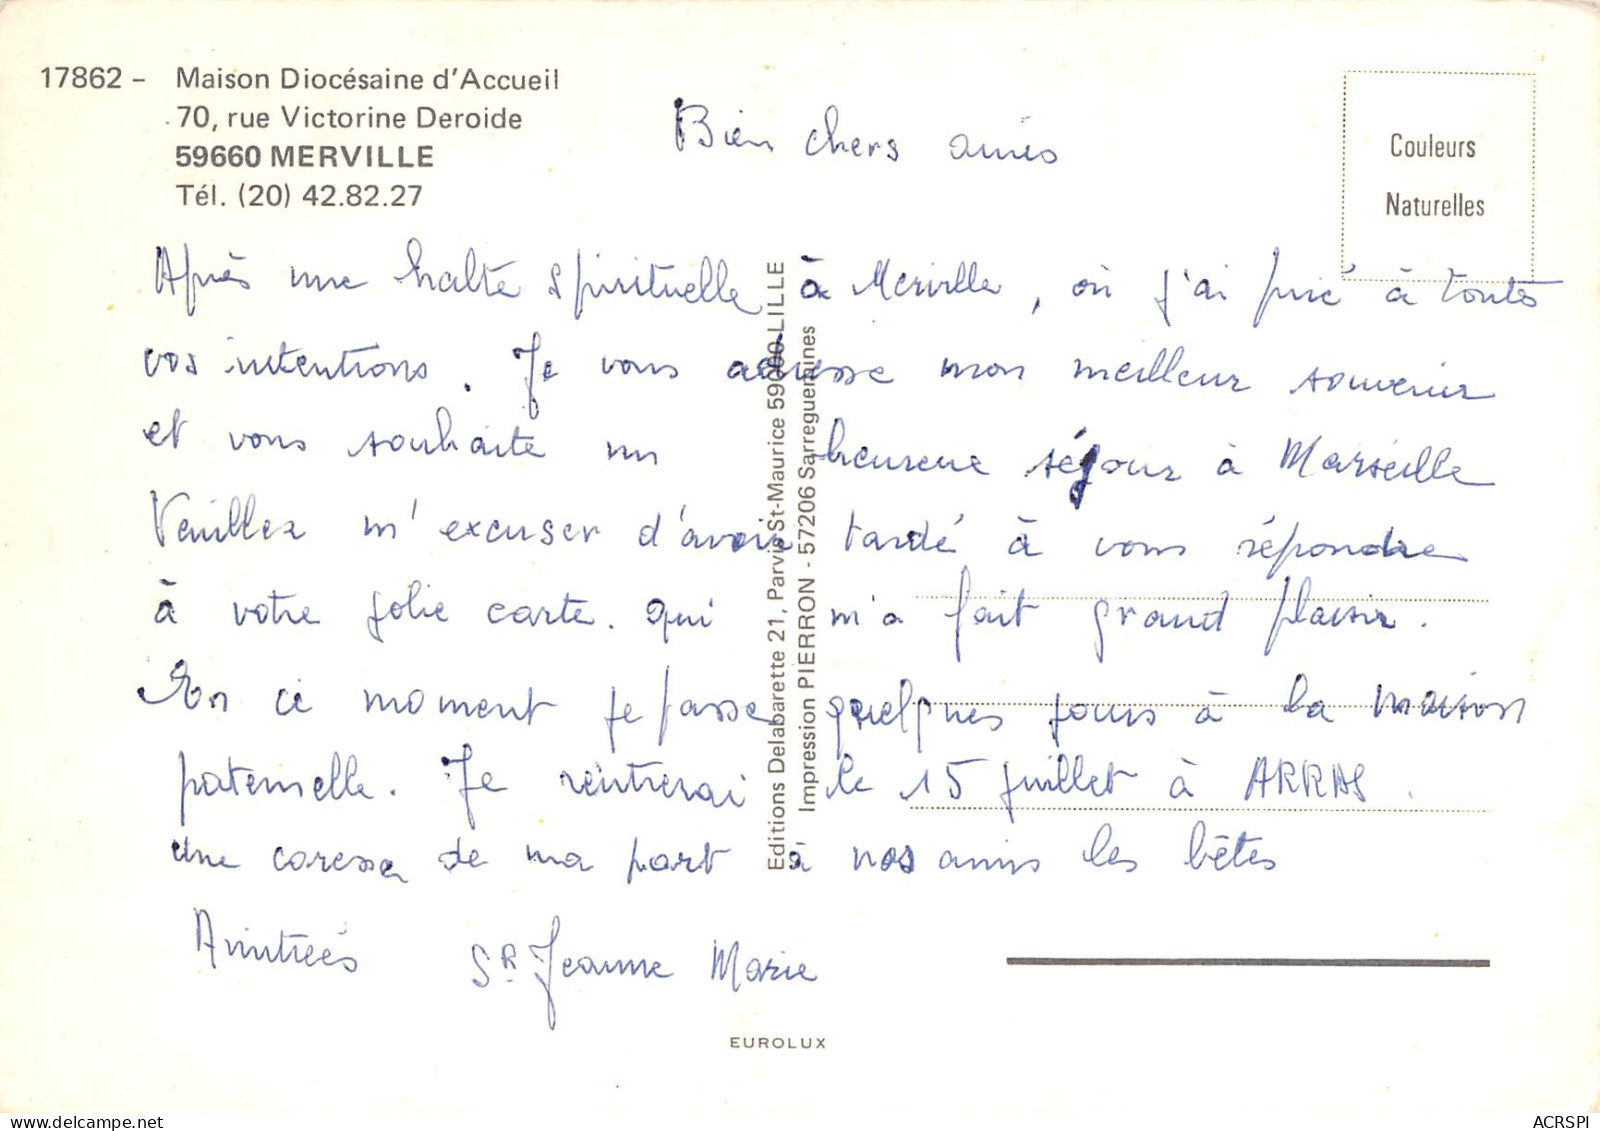 17862 - Maison Diocésaine d'Accueil
70, rue Victorine Deroide
59660 MERVILLE
Tél. (20) 42.82.27
Couleurs
Naturelles
Bien chers amis
Après une halte spirituelle à Merville, où j'ai prié à toutes
vos intentions. Je vous adresse mon meilleur souvenir
et vous souhaite un heureux séjour à Marseille
Veuillez m'excuser d'avoir tardé à vous répondre
à votre jolie carte. qui m'a fait grand plaisir.
En ce moment je passe quelques jours à la maison
paternelle. Je rentrerai le 15 juillet à ARRAS.
Une caresse de ma part à nos amis les bêtes
Amitiés Sr. Jeanne Marie
Editions Delabarette 21, Parvis St-Maurice 59000 LILLE
Impression PIERRON - 57206 Sarreguemines
EUROLUX
delcampe.net
ACRSPI